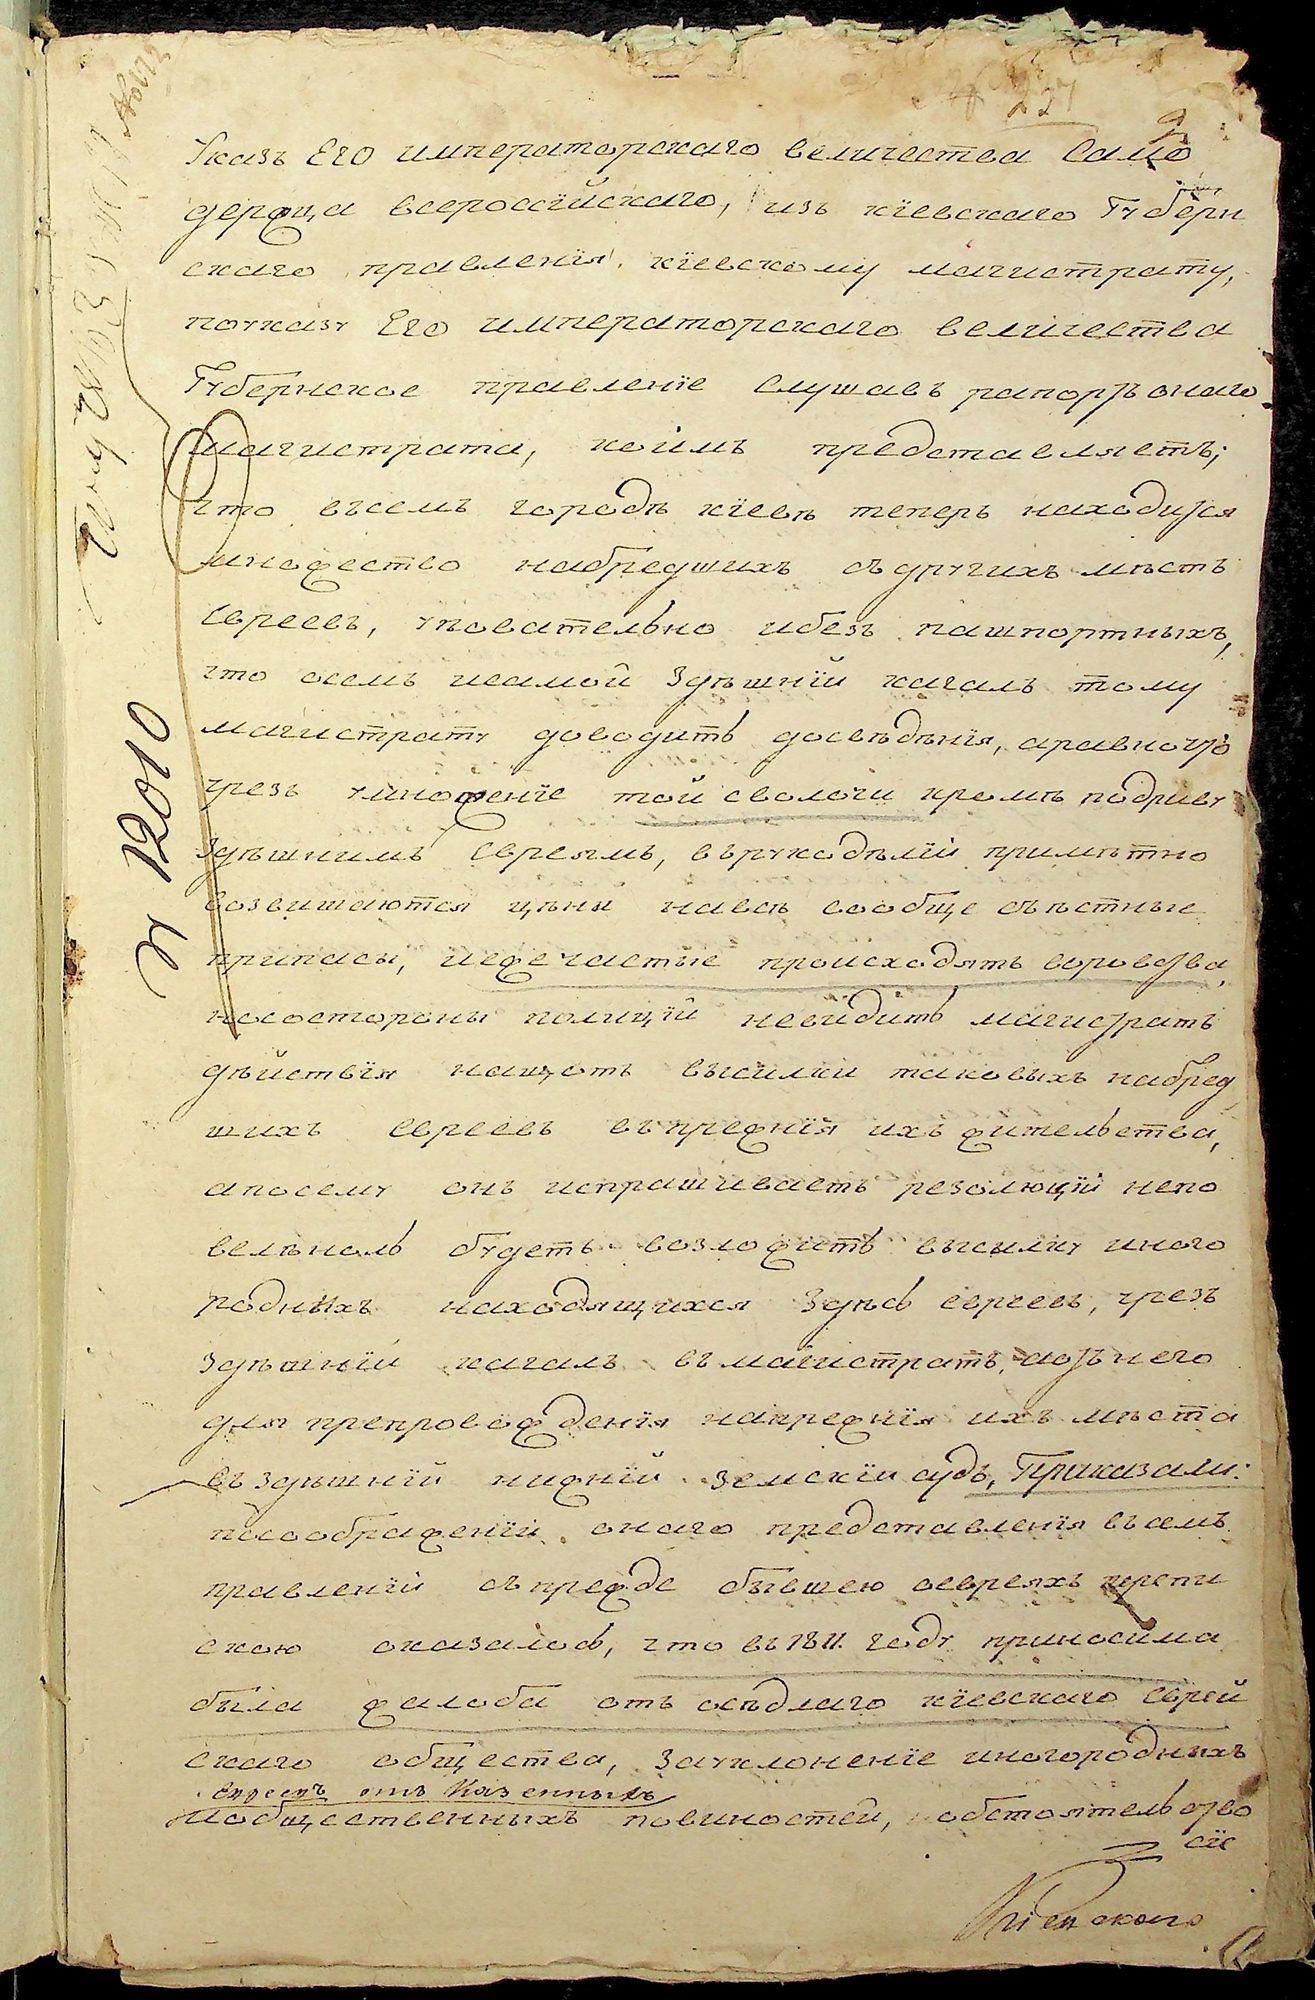 237
2
Указъ Его императорскаго величества само
держца всероссїйскаго, изъ кїевскаго Губерн
скаго правленїя. кїевскому магистрату,
поуказу Его императорскаго величества
Губернское правленїе слушавъ рапортъ онаго
магистрата, коимъ представляетъ;
что всемъ городѣ кїевѣ теперь находится
множество набредшихъ съ другихъ мѣстъ
Евреевъ, уповательно ибезъ пашпортныхъ,
что осемъ исамой здѣшнїй кагалъ тому
магистрату доводитъ досвѣдѣнїя, аравно что
чрезъ умноженїе той сволочи кромѣ подриву
Здѣшнимъ евреямъ, върукодѣлїи примѣтно
возвишаются цѣни навсѣ вообще съѣстные
припасы, ищечастые происходятъ воровства,
носостороны полицїи невидитъ магистратъ
дѣйствїя нащотъ высилки таковыхъ набред
шихъ евреевъ въпрежнїя ихъ жительства,
апосему онъ испрашиваетъ резолюцїи непо
велѣноль будетъ возложитъ высилку иного
родныхъ находящихся здѣсь евреевъ, чрезъ
здѣшнїй кагалъ въмагистратъ, аотъ него
для препровожденїя напрежнїя ихъ мѣста
въздѣшнїй нижнїй земскїй судъ, Приказали:
посоображенїи онаго представленїя въсемъ
правленїи съпрежде бывшею оевреяхъ перепи
скою оказалось, что въ 1811. году приносима
была жалоба отъ осѣдлаго кїевскаго еврей
скаго общества, зауклоненїе иногородныхъ
евреевъ отъ Казенныхъ
иобщественныхъ повиностей, обстоятельство
сїе
N 12010